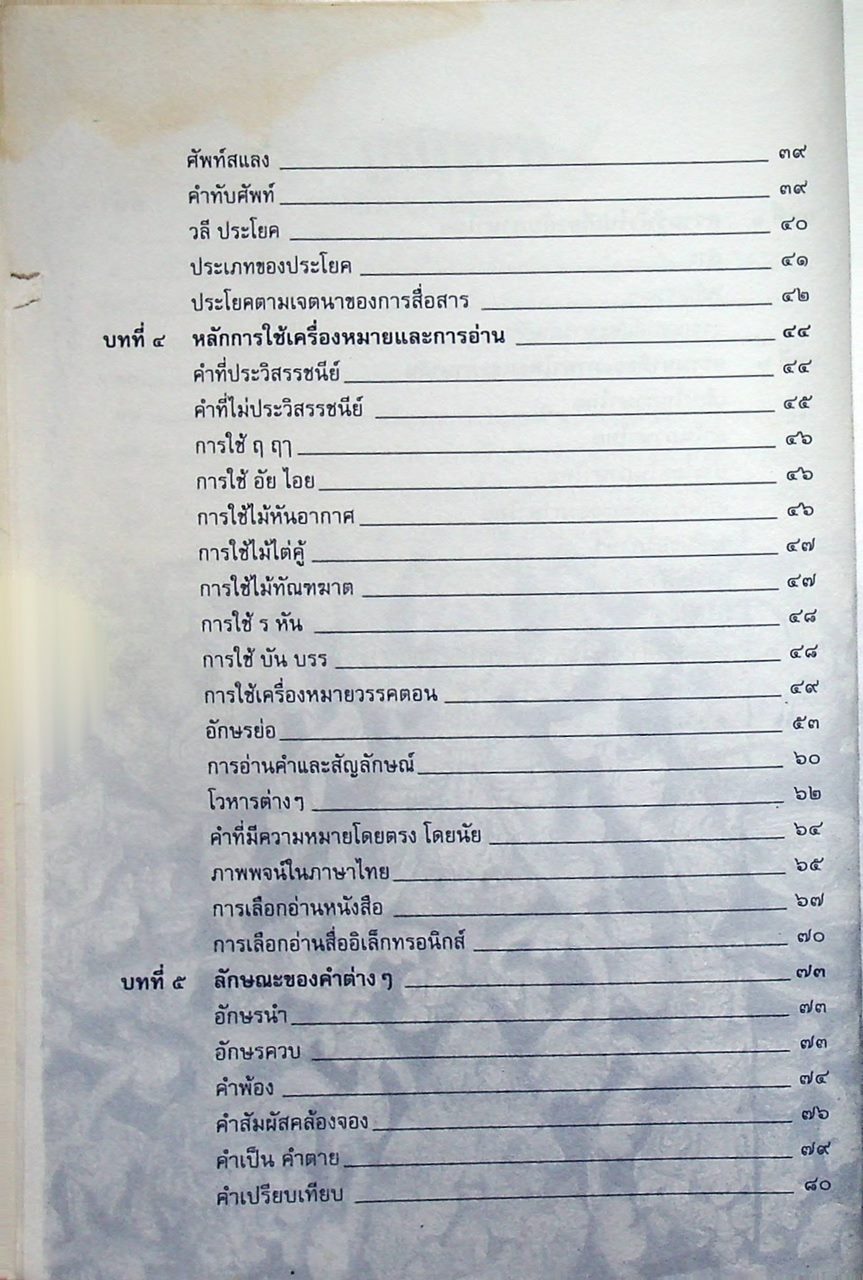 ศัพท์สแลง ๓๙
คำทับศัพท์ ๓๙
วลี ประโยค ๔๐
ประเภทของประโยค ๔๑
ประโยคตามเจตนาของการสื่อสาร ๔๒
บทที่ ๔ หลักการใช้เครื่องหมายและการอ่าน ๔๔
คำที่ประวิสรรชนีย์ ๔๔
คำที่ไม่ประวิสรรชนีย์ ๔๕
การใช้ ฤ ฤๅ ๔๖
การใช้ อัย ไอย ๔๖
การใช้ไม้หันอากาศ ๔๖
การใช้ไม้ไต่คู้ ๔๗
การใช้ไม้ทัณฑฆาต ๔๗
การใช้ ร หัน ๔๘
การใช้ บัน บรร ๔๘
การใช้เครื่องหมายวรรคตอน ๔๙
อักษรย่อ ๕๓
การอ่านคำและสัญลักษณ์ ๖๐
โวหารต่างๆ ๖๒
คำที่มีความหมายโดยตรง โดยนัย ๖๔
ภาพพจน์ในภาษาไทย ๖๕
การเลือกอ่านหนังสือ ๖๗
การเลือกอ่านสื่ออิเล็กทรอนิกส์ ๗๐
บทที่ ๕ ลักษณะของคำต่าง ๆ ๗๓
อักษรนำ ๗๓
อักษรควบ ๗๓
คำพ้อง ๗๔
คำสัมผัสคล้องจอง ๗๖
คำเป็น คำตาย ๗๙
คำเปรียบเทียบ ๘๐